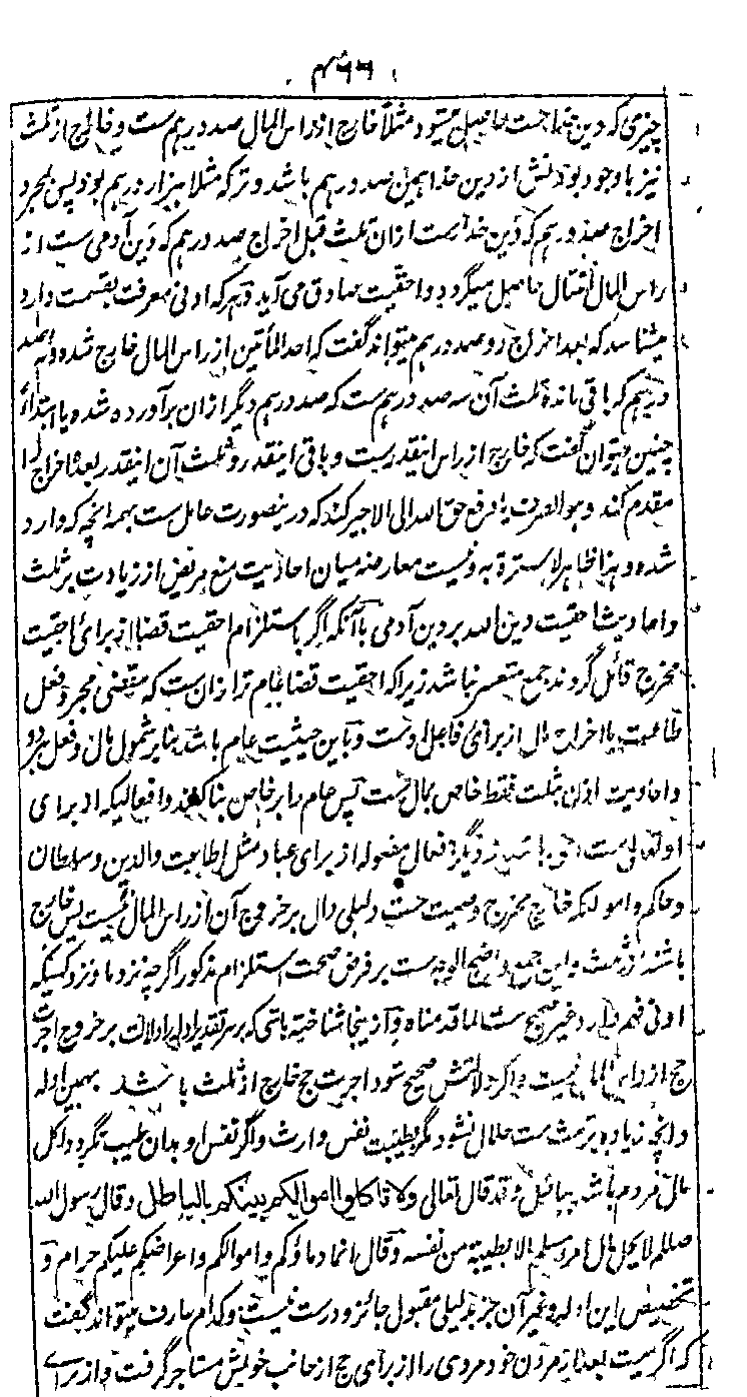 ۴۶۶
چیزی که دین خداست حاصل میشود مثلاً خارج از راس المال صد درہم ست و خارج از ثلث
نیز با وجود بودنش از دین خدا همین صد درہم باشد و ترکہ مثلا ہزار درہم بود پس بمجرد
اخراج صد درہم کہ دین خداست ازان ثلث قبل اخراج صد درہم کہ دین آدمی ست از
راس المال امتثال حاصل میگردد و احقیت صادق می آید و ہر کہ ادنی معرفت بقسمت دارد
میشناسد کہ بعد اخراج دو صد درہم میتواند گفت کہ احد المأتین از راس المال خارج شدہ و
درہم کہ باقی ماندہ ثلث آن سہ صد درہم ست کہ صد درہم دیگر ازان برآوردہ شد و یا ابتداءً
چنین میتوان گفت کہ خارج از راس اینقدرست و باقی اینقدر و ثلث آن اینقدر بعدہ اخراج را
مقدم کند و ہو الصرف یا رفع حق اللہ الی الاجیر کند کہ درینصورت عامل ست بہمہ انچہ کہ وارد
شدہ و ہذا ظاہر لا سترة بہ و نیست معارضہ میان احادیث منع مریض از زیادت بر ثلث
و احادیث احقیت دین اللہ بر دین آدمی با آنکہ اگر باستلزام احقیت قضا از برای احقیت
مخرج قائل گروند جمع متعسر نباشد زیراکہ احقیت قضا عام تر ازان ست کہ مقتضی مجرد فعل
طاعت یا اخراج مال از برای فاعل اوست و باین حیثیت عام باشد بنابر شمول مال و فعل ہر دو
و احادیث اذن بثلث فقط خاص بمال ست پس عام را بر خاص بنا کنند و افعالیکہ از برای
او تعالی ست احق باشد از دیگر افعال مفعولہ از برای عباد مثل اطاعت والدین و سلطان
و حاکم و اموالیکہ خارج مخرج وصیت ست دلیلی دال بر خروج آن از راس المال نیست پس خارج
باشد از ثلث و این جمع واضح الوجہ ست بر فرض صحت استلزام مذکور اگرچہ نزد ما و نزد کسیکہ
ادنی فہم دارد غیر صحیح ست لما قدمناہ و از ینجا شناختہ باشی کہ بر تقدیر ادلہ را دلالت بر خروج اجرت
حج از راس المال نیست و اگر دلالتش صحیح شود اجرت حج خارج از ثلث باشد بہمین ادلہ
و انچہ زیادہ بر ثلث ست حلال نشود مگر بطیبت نفس وارث و اگر نفس او بدان طیب نگردد اکل
مال مردم باشد بباطل و قد قال تعالی ولا تاکلوا اموالکم بینکم بالباطل و قال رسول اللہ
صللم لا یحل مال امرء مسلم الا بطیبة من نفسہ و قال انما دماؤکم و اموالکم و اعراضکم علیکم حرام و
تخصیص این ادلہ و غیر آن جز بدلیلی مقبول جائز و درست نیست و کدام عارف میتواند گفت
کہ اگر میت بعد از مردن خود مردی را از برای حج از جانب خویش مستاجر گرفت و از برای